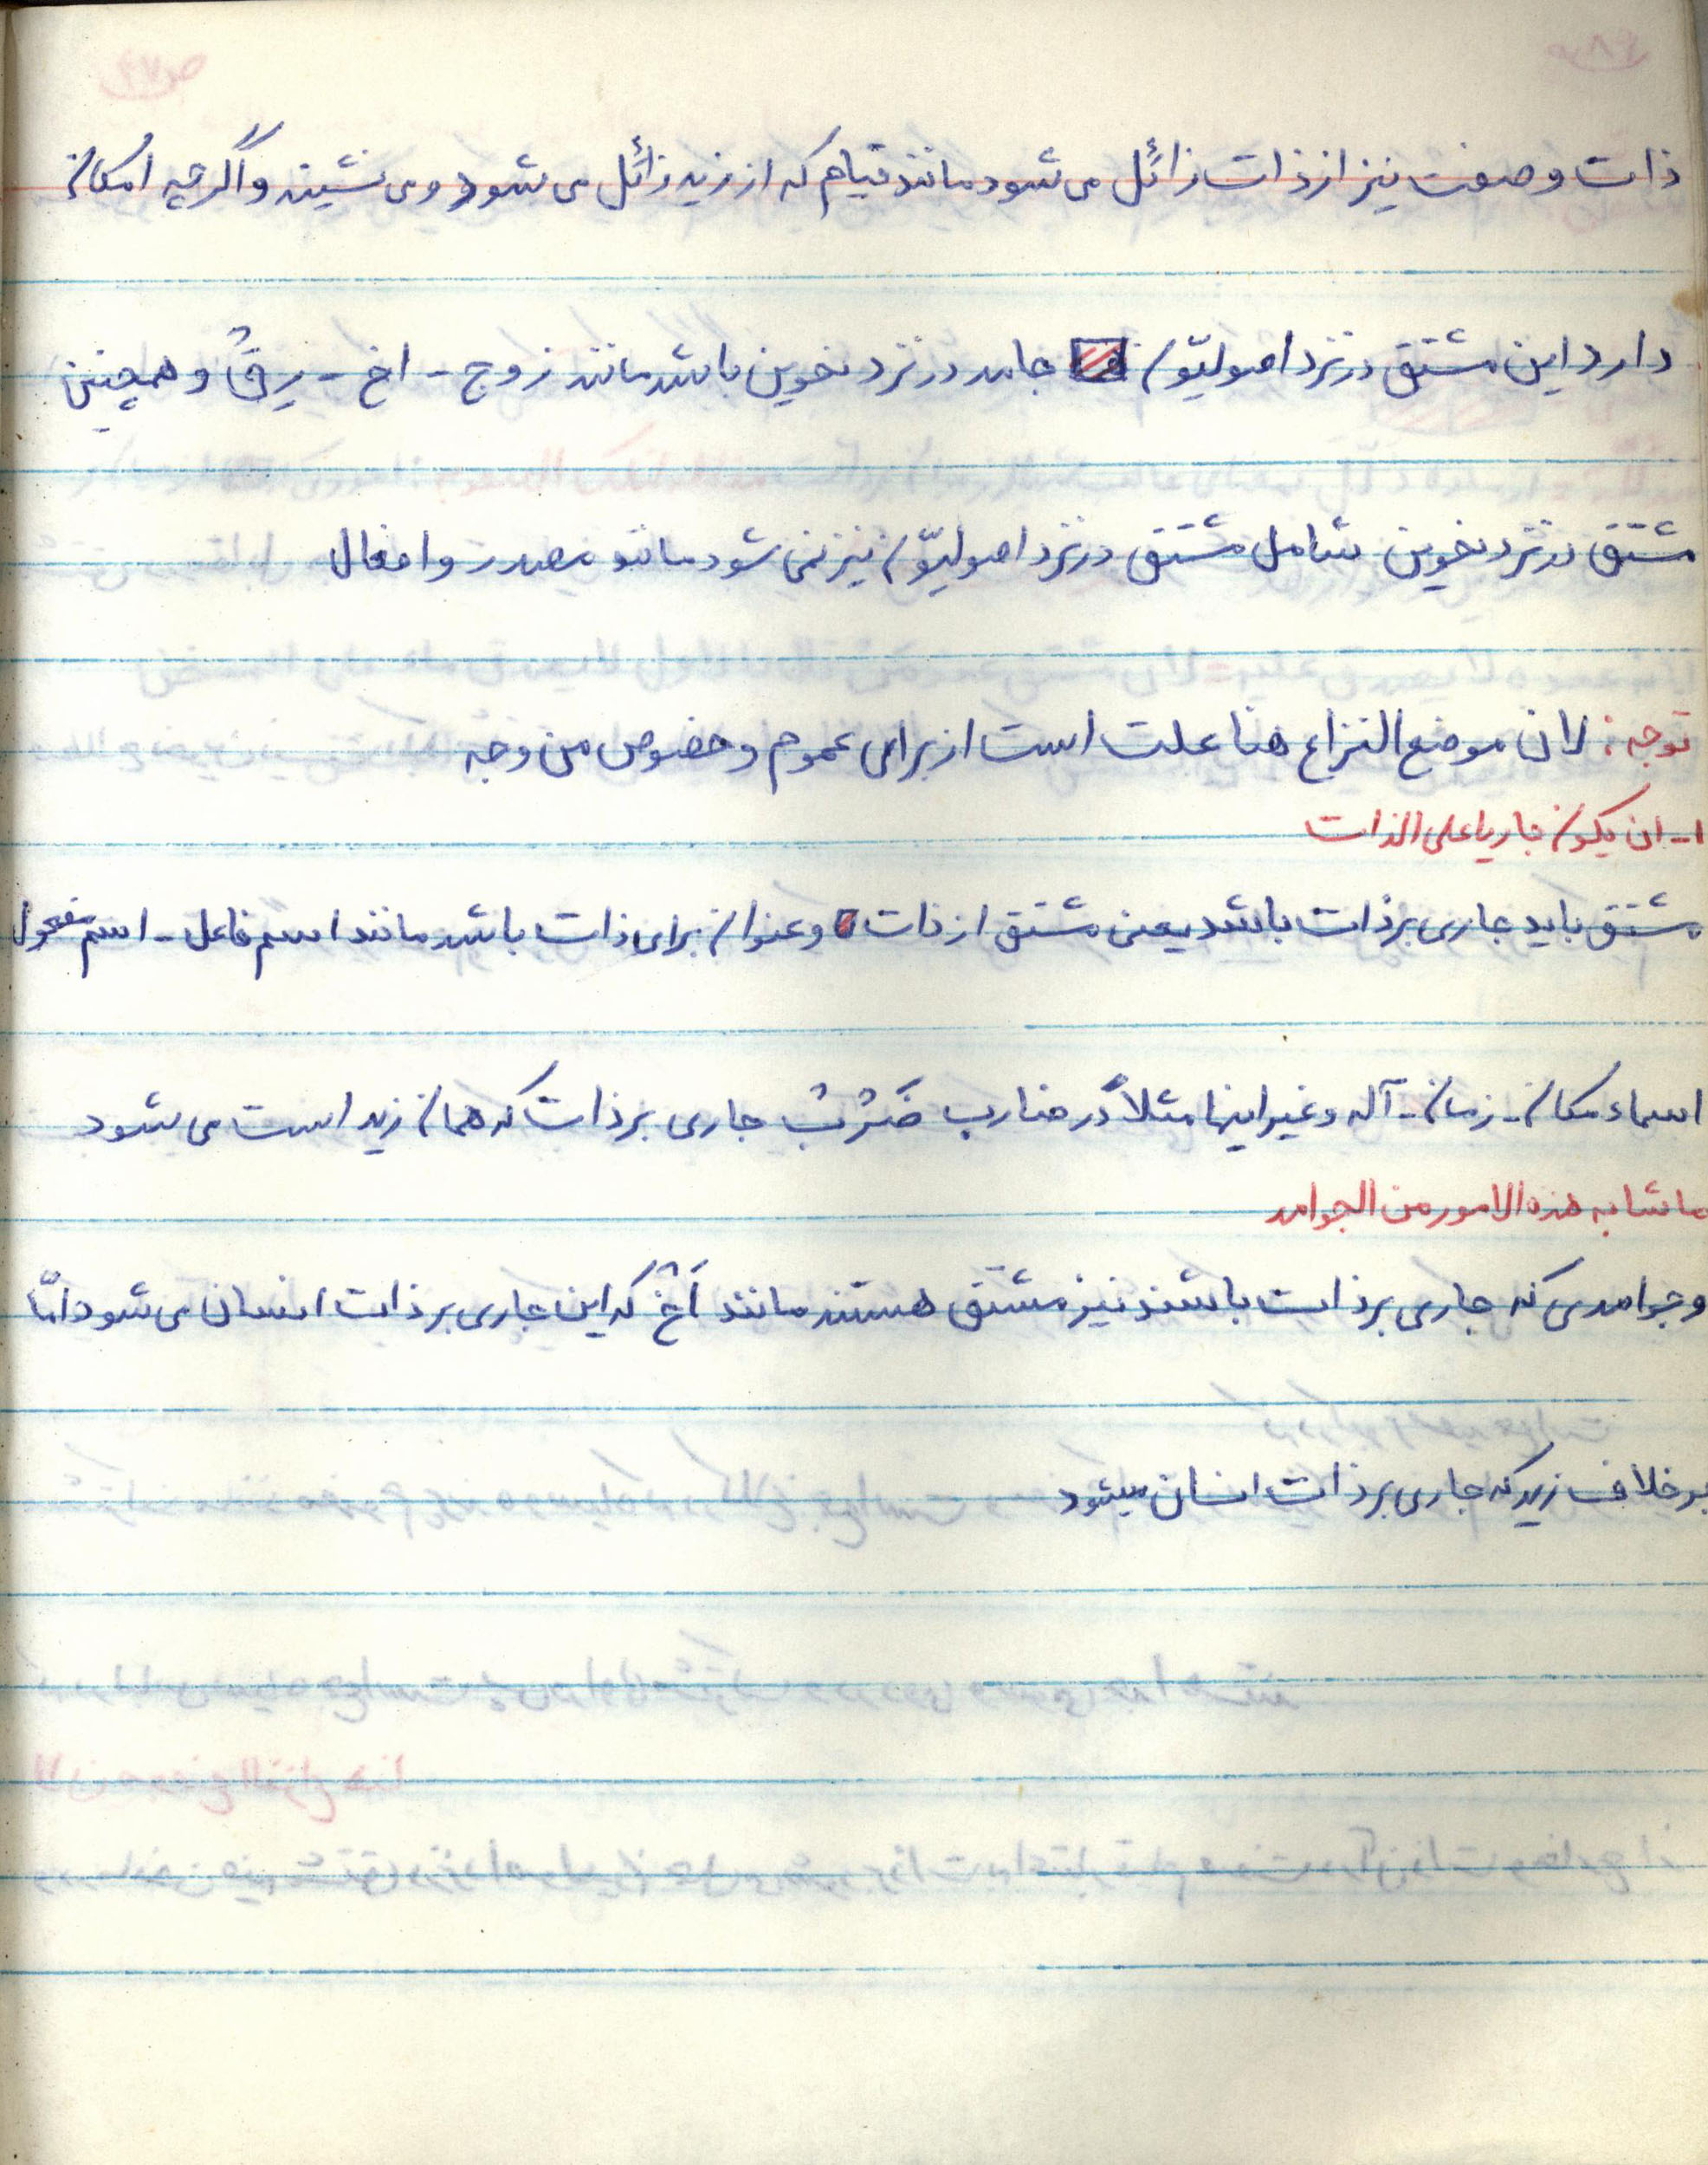 ذات وصفت نیز از ذات زائل می شود مانند قیام که از زید زائل می شود و می نشیند و اگرچه امکان
دارد این مشتق در نزد اصولیّون جامد در نزد نحوین باشد مانند زوج - اخ - رِقُّ و همچنین
مشتق در نزد نحوین شامل مشتق در نزد اصولیّون نیز نمی شود مانند مصدر و افعال
توجه: لان موضع النزاع هنا علت است از برای عموم و خصوص من وجه
۱- ان یکون جاریا علی الذات
مشتق باید جاری بر ذات باشد یعنی مشتق از ذات و عنوان برای ذات باشد مانند اسم فاعل - اسم مفعول
اسماء مکان - زمان - آله و غیر اینها مثلاً در ضارب ضَرْبْ جاری بر ذات که همان زید است می شود
ماشابه هذه الامور من الجوامد
و جوامدی که جاری بر ذات باشند نیز مشتق هستند مانند اَخْ که این جاری بر ذات انسان می شود امّا
بر خلاف زید که جاری بر ذات انسان میشود